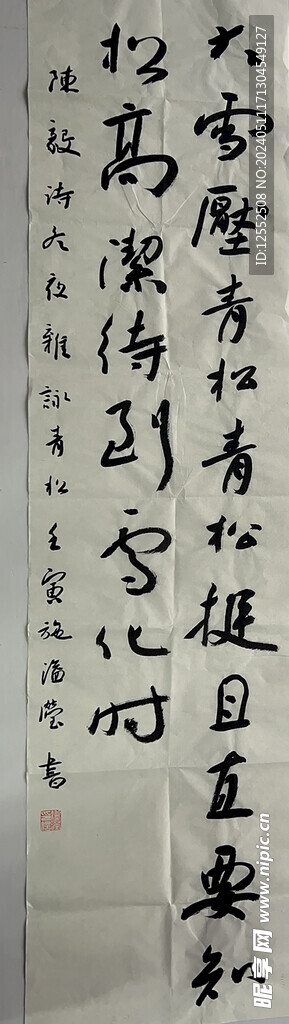 大雪壓青松青松挺且直要知
松高潔待到雪化時
陳毅诗冬夜雜詠青松壬寅施海瑩書
ID:12552508 NO:20240511171304549127
昵享网 www.nipic.cn